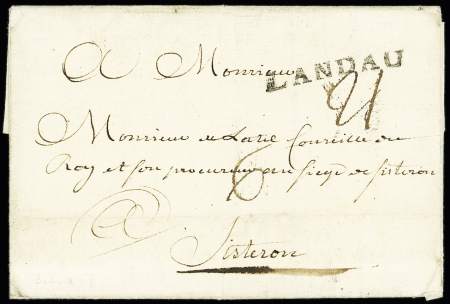 A Monsieur
LANDAU
Monsieur de Conseille du
Roy et son procureur au siege de sisteron
A
Sisteron